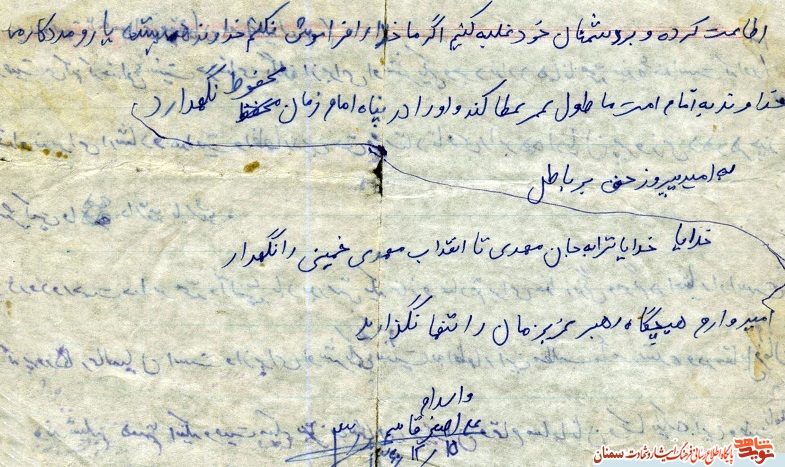 اطاعت کرده و بر دشمنان خود غلبه کنیم اگر ما خدا را فراموش نکنیم خداوند همیشه یار و مددکار ما
خداوند به امام امت ما طول عمر عطا کند و او را در پناه امام زمان محفوظ نگهدارد
به امید پیروز حق بر باطل
خدایا خدایا ترا به جان مهدی تا انقلاب مهدی خمینی را نگهدار
امیدوارم هیچگاه رهبر عزیزمان را تنها نگذارید
والسلام
علی اصغر قاسمی
نوید شاهد
پایگاه اطلاع رسانی فرهنگ ایثار و شهادت سمنان